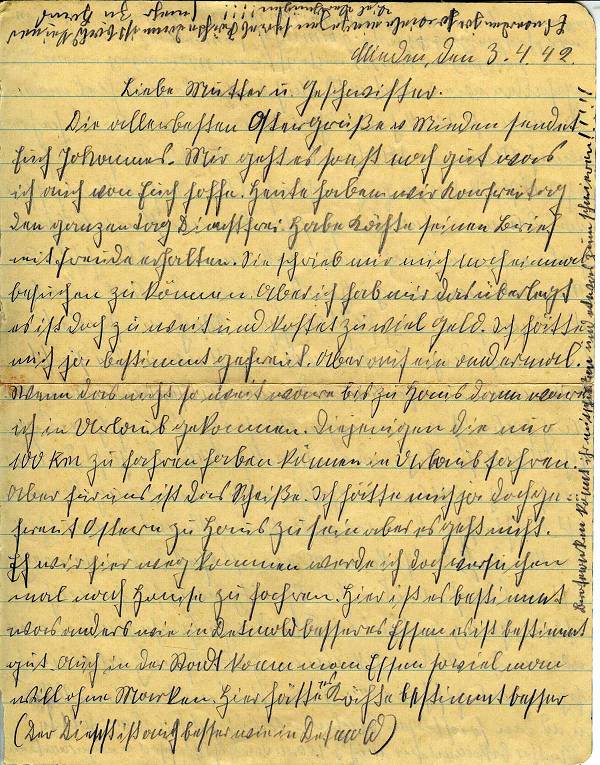 Minden, den 3.4.42
Liebe Mutter u. Geschwister.
Die allerbesten Ostergrüße v. Minden sendet
Euch Johannes. Mir geht es sonst noch gut was
ich auch von Euch hoffe. Heute haben wir Karfreitag
den ganzen tag Dienstfrei. Habe seinen Brief
mit freude erhalten. Sie schrieb mir mich noch einmal
besuchen zu können. Aber ich hab mir das überlegt
es ist doch zu weit und kostet zu viel Geld. Ich hätte
mich ja bestimmt gefreut. Aber auf ein andermal.
Wenn das nicht so weit wäre bis zu Haus dann wäre
ich in Urlaub gekommen. Diejenigen die nur
100 km zu fahren haben können in Urlaub fahren.
Aber für uns ist das Scheiße. Ich hätte mich ja doch ge-
freut Ostern zu Haus zu sein aber es geht nicht.
Eh wir hier weg kommen werde ich doch versuchen
mal nach Hause zu fahren. Hier ist es bestimmt
was anders wie in Detmold besseres Essen es ist bestimmt
gut. Auch in der Stadt kann man Essen soviel man
will ohne Marken. Hier hätte bestimmt besser
(Der Dienst ist auch besser wie in Detmold)